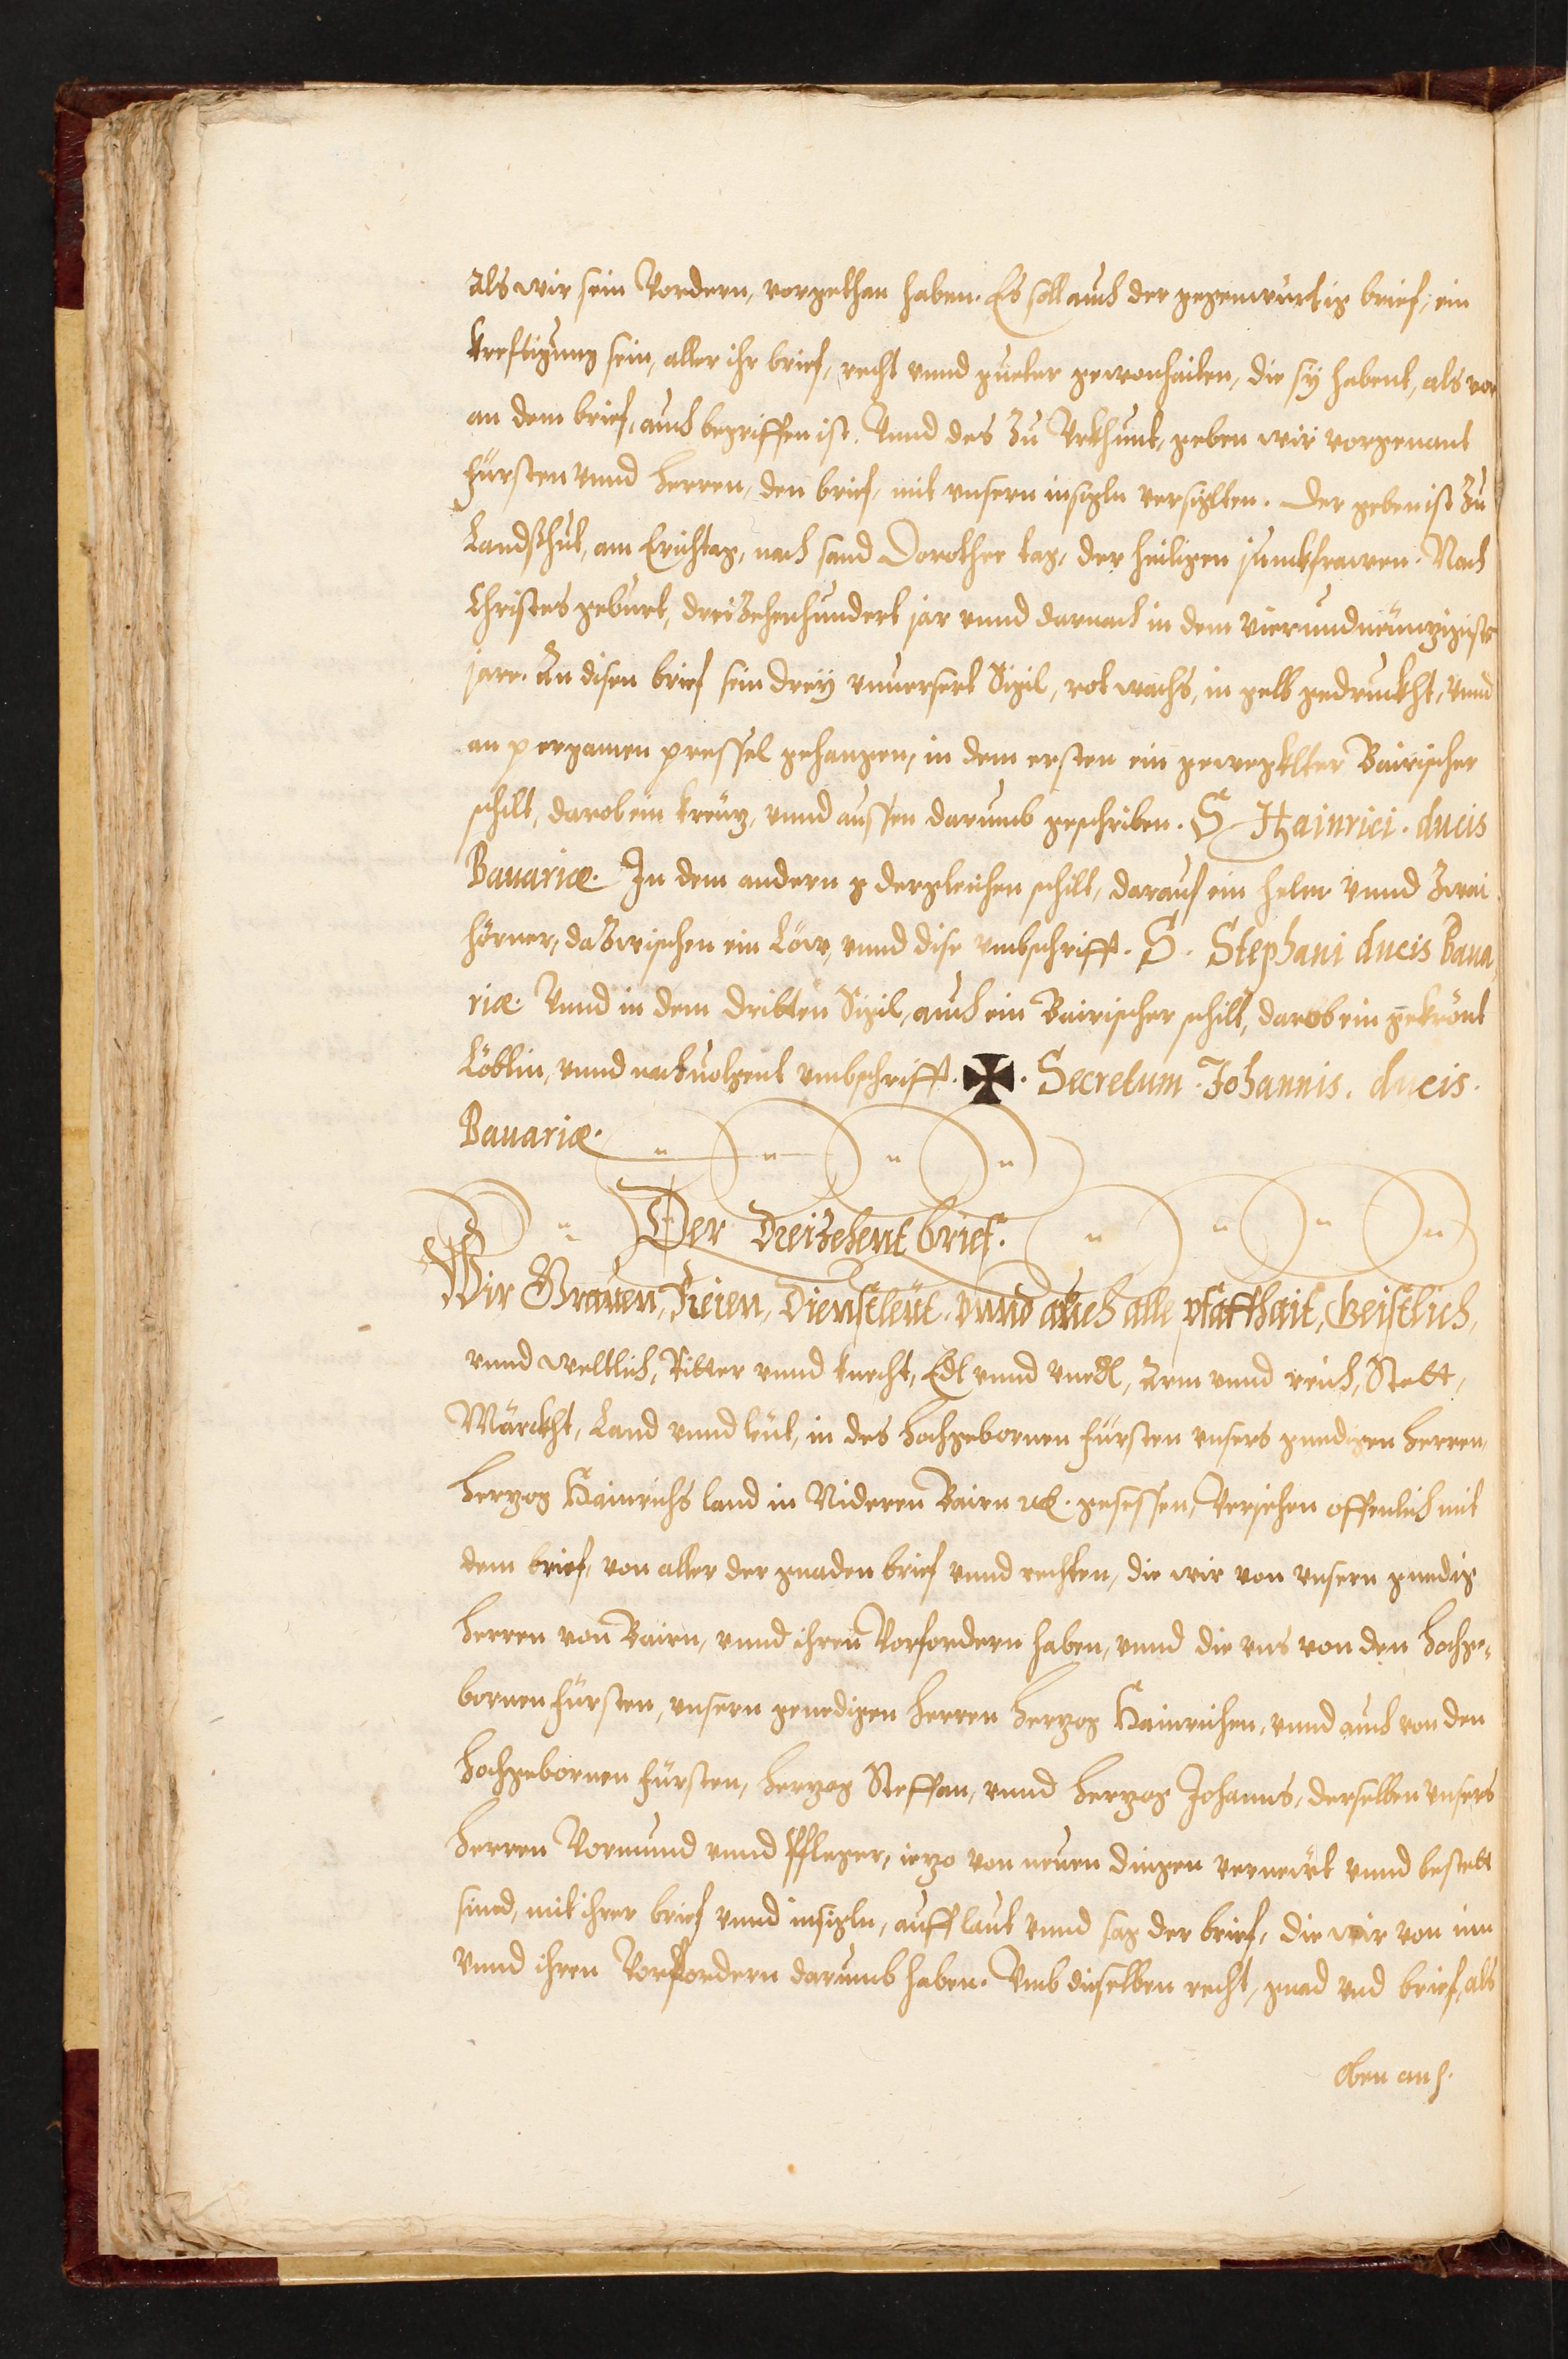 als wir sein Vordern, vorgethan haben. Es soll auch der gegenwürtig brief, ein
kreftigung sein, aller ihr brief, recht vnnd gueter gewonhaiten, die sy habent, als vor
an dem brief, auch begriffen ist. Vnnd des zu Vrkhunt, geben wir vorgenant
fürsten vnnd Herren, den brief, mit vnsern insigln versiglten. Der geben ist zu
Landßhut, am Erichtag, nach sand Dorothee tag, der heiligen junckfrawen. Nach
Christes geburt, dreizehenhundert jar vnnd darnach in dem vierundneünzigiste
jare. An disen brief sein dreÿ vnuersert Sigil, rot wachs, in gelb gedruckht, vnnd
an pergamen pressel gehangen, in dem ersten ein gewegklter Bairischer
schilt, darob ein kreüz, vnnd aussen darumb geschriben. S. Hainrici. ducis
Bauariæ. In dem andern g dergleichen schilt, darauf ein helm vnnd zwai
hörner, dazwischen ein Löw, vnnd dise vmbschrifft. S. Stephani ducis Baua
riæ. Vnnd in dem dritten Sigil, auch ein Bairischer schilt, darob ein gekrönt
Löblin, vnnd nachuolgent vmbschrifft. ✠. Secretum. Johannis. ducis.
Bauariæ.
Der Dreizehent brief.
Wir Grauen, Freien, Dienstleüt. vnnd auch alle pfaffhait, Geistlich,
vnnd weltlich, Ritter vnnd knecht, Edl vnnd vnedl, Arm vnnd reich, Stett,
Märckht, Land vnnd leüt, in des hochgebornen fürsten vnsers gnedigen Herren,
Herzog Hainrichs land in Nideren Bairn etc. gesessen, Veriehen offenlich mit
dem brief, von aller der gnaden brief vnnd rechten, die wir von vnsern gnedig
Herren von Bairn, vnnd ihren Vorfordern haben, vnnd die vns von den Hochge-
bornen fürsten, vnsern genedigen Herren Herzog Hainrichen, vnnd auch von den
Hochgebornen fürsten, Herzog Steffan, vnnd Herzog Johanns, derselben vnsers
Herren Vormund vnnd Pfleger, iezo von neuen dingen verneürt vnnd bestett
sind, mit ihrer brief vnnd insigln, auff laut vnnd sag der brief, die wir von inn
vnnd ihren Vorfordern darumb haben. Vmb dieselben recht, gnad vnd brief, als
oben auch.